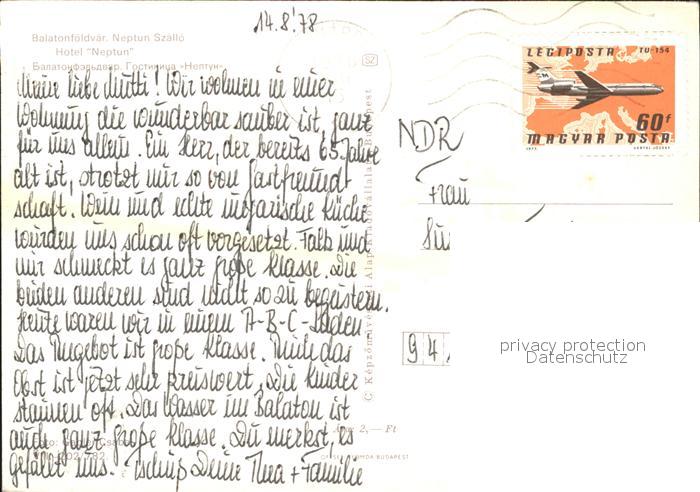 14.8.'78
Balatonföldvár. Neptun Szálló
Hotel "Neptun"
Балатонфэльдвар. Гостиница «Нептун»
Meine liebe Mutti! Wir wohnen in einer
Wohnung die wunderbar sauber ist, ganz
für uns allein. Ein Herr, der bereits 65 Jahre
alt ist, strotzt nur so von Gastfreund-
schaft. Wein und echte ungarische Küche
wurden uns schon oft vorgesetzt. Falk und
mir schmeckt es ganz große Klasse. Die
beiden anderen sind nicht so zu begeistern.
Heute waren wir in einem A-B-C-Laden
Das Angebot ist große Klasse. Auch das
Obst ist jetzt sehr preiswert, die Kinder
staunen oft. Das Wasser im Balaton ist
auch ganz große Klasse. Du merkst, es
gefällt uns. Tschüß Deine + Familie
Ára: 2,— Ft
BUDAPEST
© Képzőművészeti Alap Kiadóvállalata, Budapest
SZ
LÉGIPOSTA TU-154
60f
MAGYAR POSTA
NDR
Frau
94
privacy protection
Datenschutz